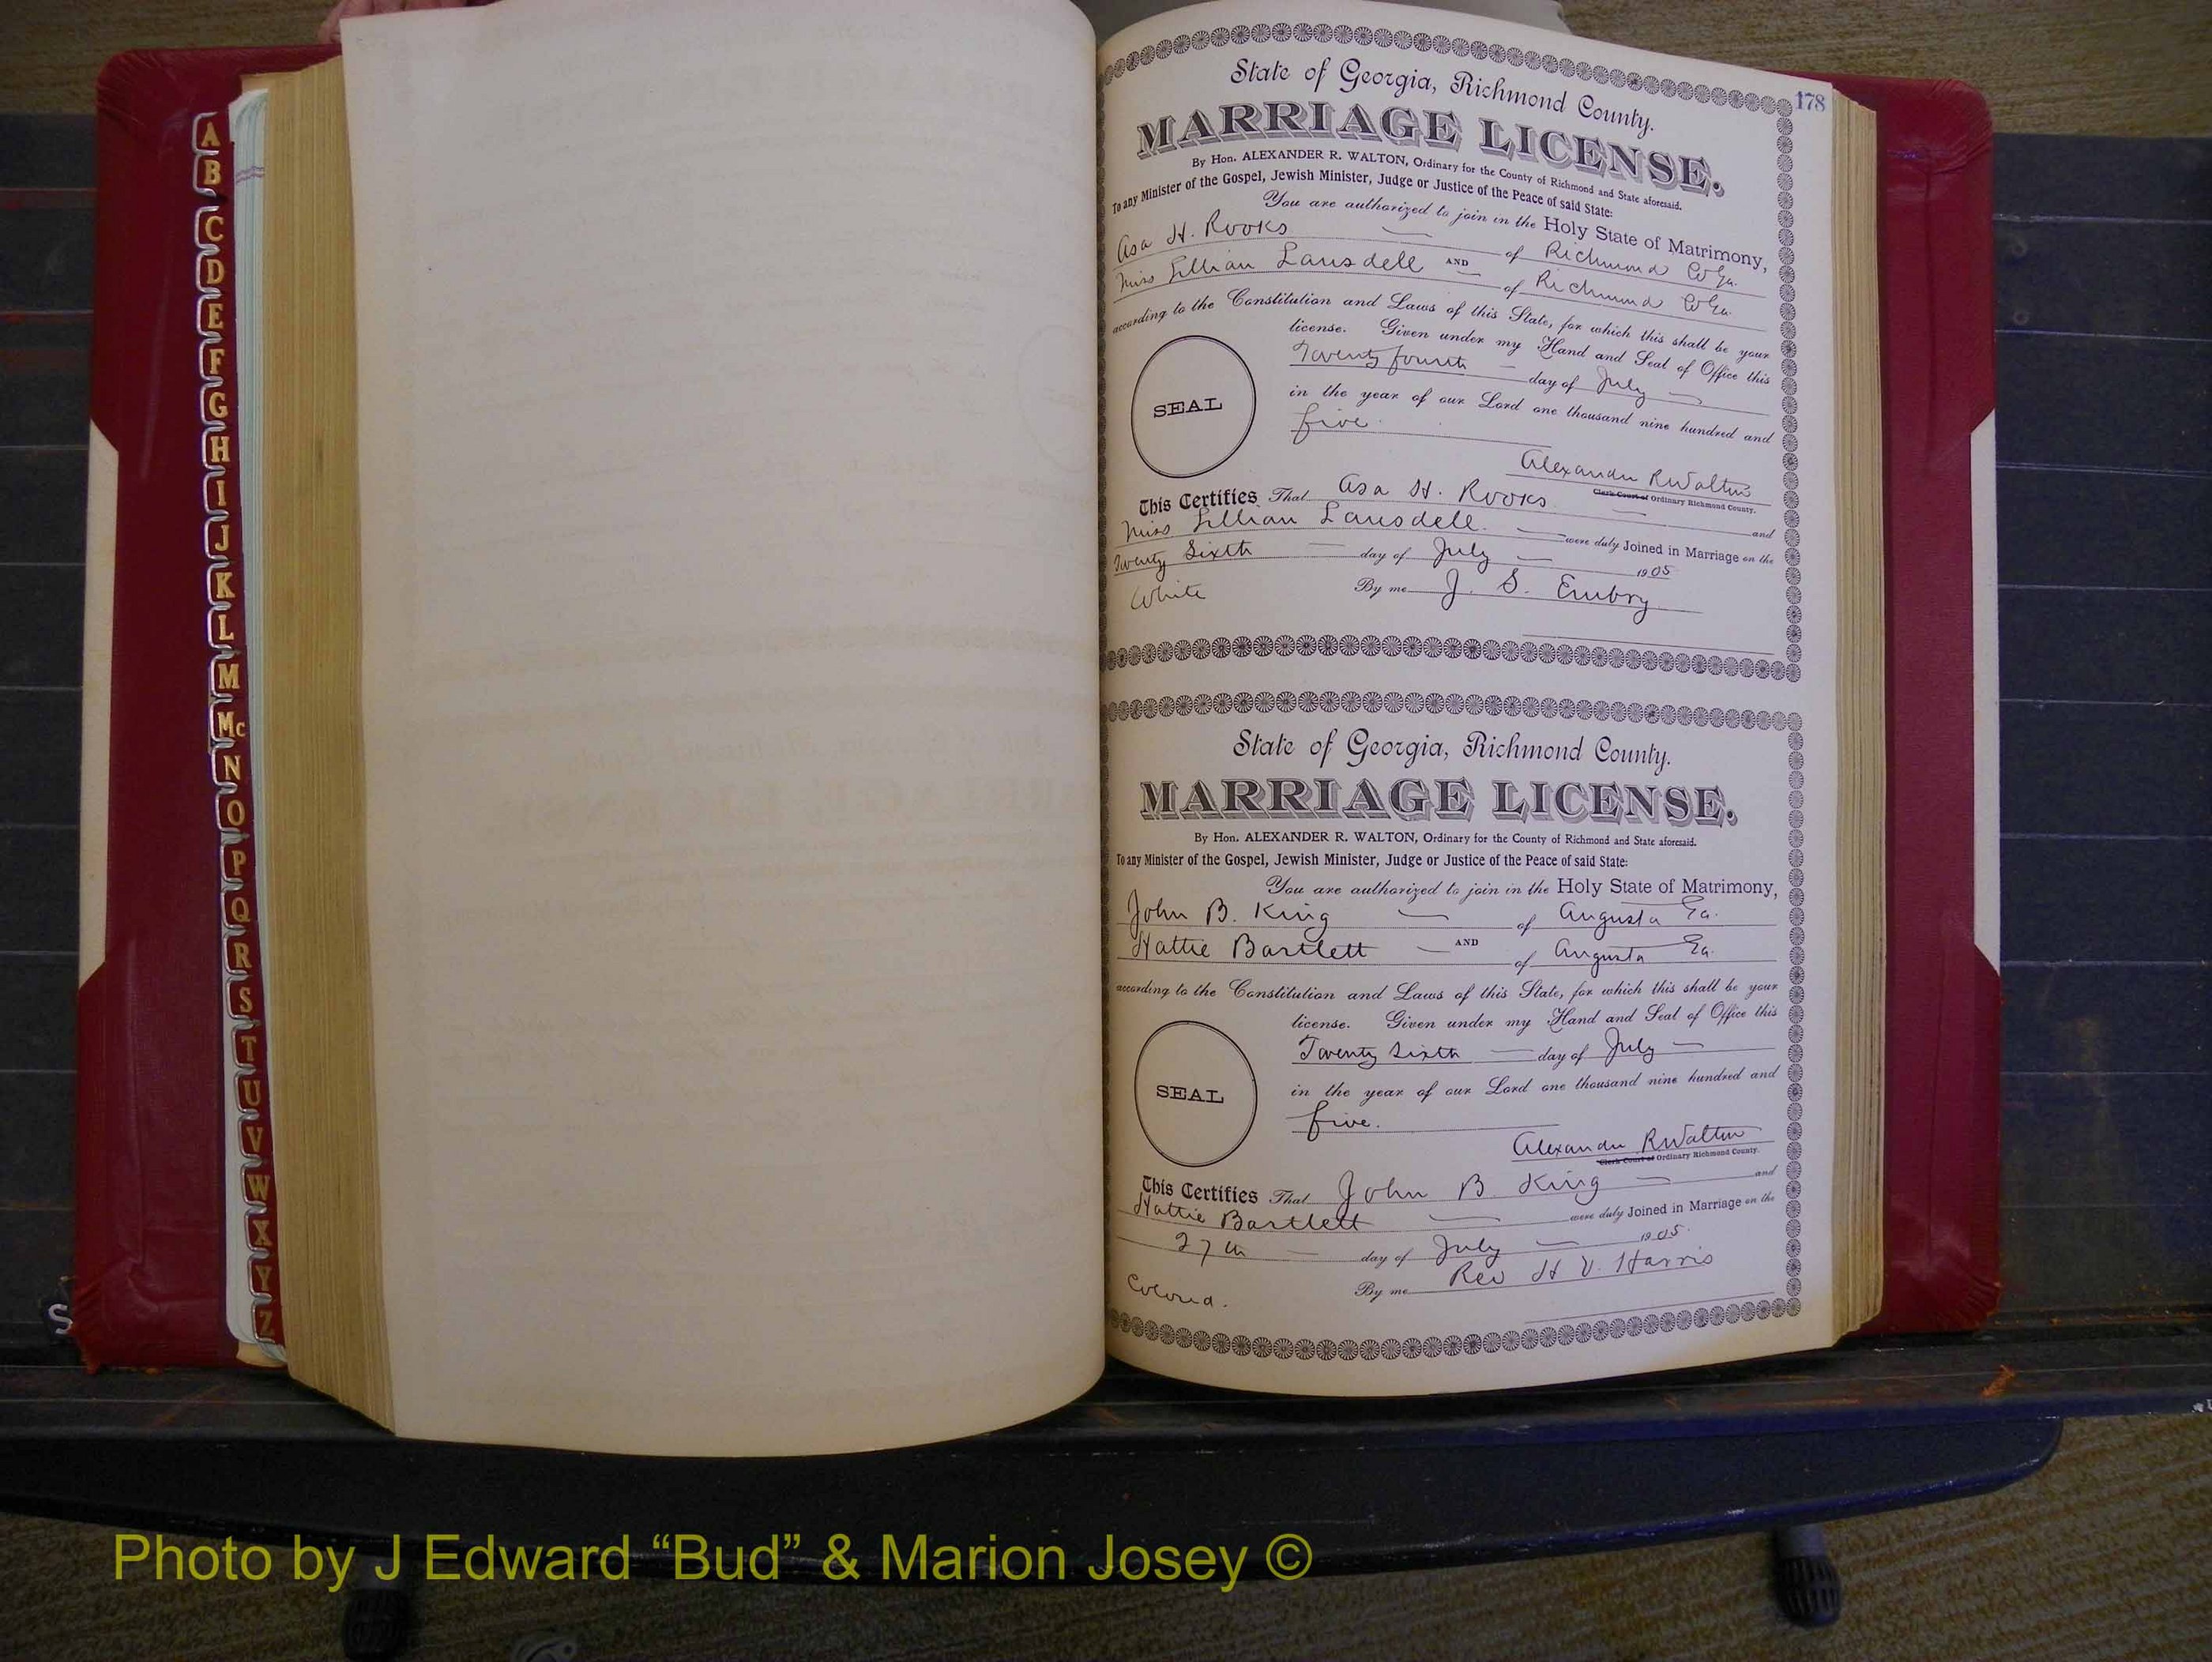 A
B
C
D
E
F
G
H
I
J
K
L
M
Mc
N
O
P
Q
R
S
T
U
V
W
X
Y
Z
178
State of Georgia, Richmond County.
MARRIAGE LICENSE.
By Hon. ALEXANDER R. WALTON, Ordinary for the County of Richmond and State aforesaid.
To any Minister of the Gospel, Jewish Minister, Judge or Justice of the Peace of said State:
You are authorized to join in the Holy State of Matrimony,
Asa H. Rooks — of Richmond Co Ga.
Miss Lillian Lansdell AND — of Richmond Co Ga.
according to the Constitution and Laws of this State, for which this shall be your
license. Given under my Hand and Seal of Office this
Twenty fourth — day of July —
in the year of our Lord one thousand nine hundred and
five.
SEAL
Alexander R Walton
Clerk Court of Ordinary Richmond County.
This Certifies That Asa H. Rooks — and
Miss Lillian Lansdell. — were duly Joined in Marriage on the
Twenty Sixth — day of July — 1905
White By me J. S. Embry
State of Georgia, Richmond County.
MARRIAGE LICENSE.
By Hon. ALEXANDER R. WALTON, Ordinary for the County of Richmond and State aforesaid.
To any Minister of the Gospel, Jewish Minister, Judge or Justice of the Peace of said State:
You are authorized to join in the Holy State of Matrimony,
John B. King — of Augusta Ga.
Hattie Bartlett — AND of Augusta Ga.
according to the Constitution and Laws of this State, for which this shall be your
license. Given under my Hand and Seal of Office this
Twenty Sixth — day of July —
in the year of our Lord one thousand nine hundred and
five.
SEAL
Alexander R Walton
Clerk Court of Ordinary Richmond County.
This Certifies That John B. King — and
Hattie Bartlett — were duly Joined in Marriage on the
27th — day of July — 1905.
Colored. By me Rev H V. Harris
S
Photo by J Edward “Bud” & Marion Josey ©